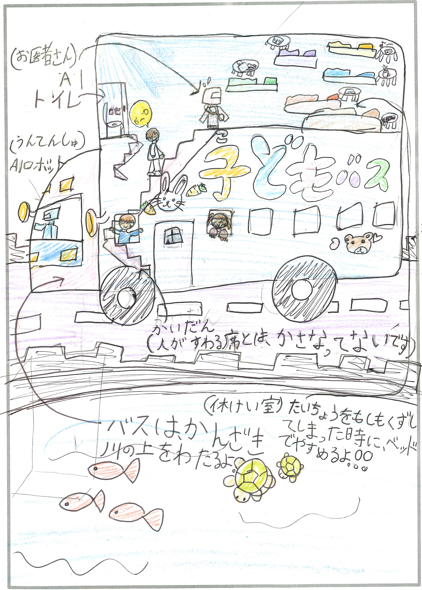 (お医者さん)
AI
トイレ
(うんてんしゅ)
AIロボット
子どもバス
かいだん
(人がすわる席とは、かさなってないです)
(休けい室)たいちょうをもしもくずし
てしまった時に、ベッド
でやすめるよ○○
バスは、かんざき
川の上をわたるよ。